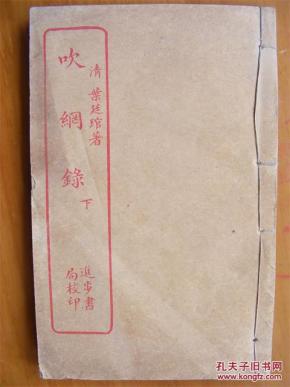 清 葉廷琯著
吹網錄 下
進步書
局校印
孔夫子旧书网
www.kongfz.com